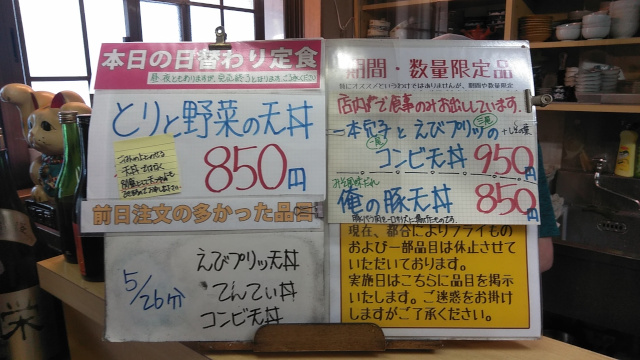 本日の日替わり定食
昼、夜ともあります
とりと野菜の天丼
850円
前日注文の多かった品
5/26分
えびプリッ天丼
てんてい丼
コンビ天丼
期間・数量限定品
特にオススメというわけではありませんが、期間や数量限定
店内で食事のみお出ししています。
一本穴子とえびプリッの
コンビ天丼 950円
俺の豚天丼 850円
現在、都合によりフライもの
および一部品目は休止させて
いただいております。
実施日はこちらに品目を掲示
いたします。ご迷惑をお掛け
しますがご了承ください。
栄